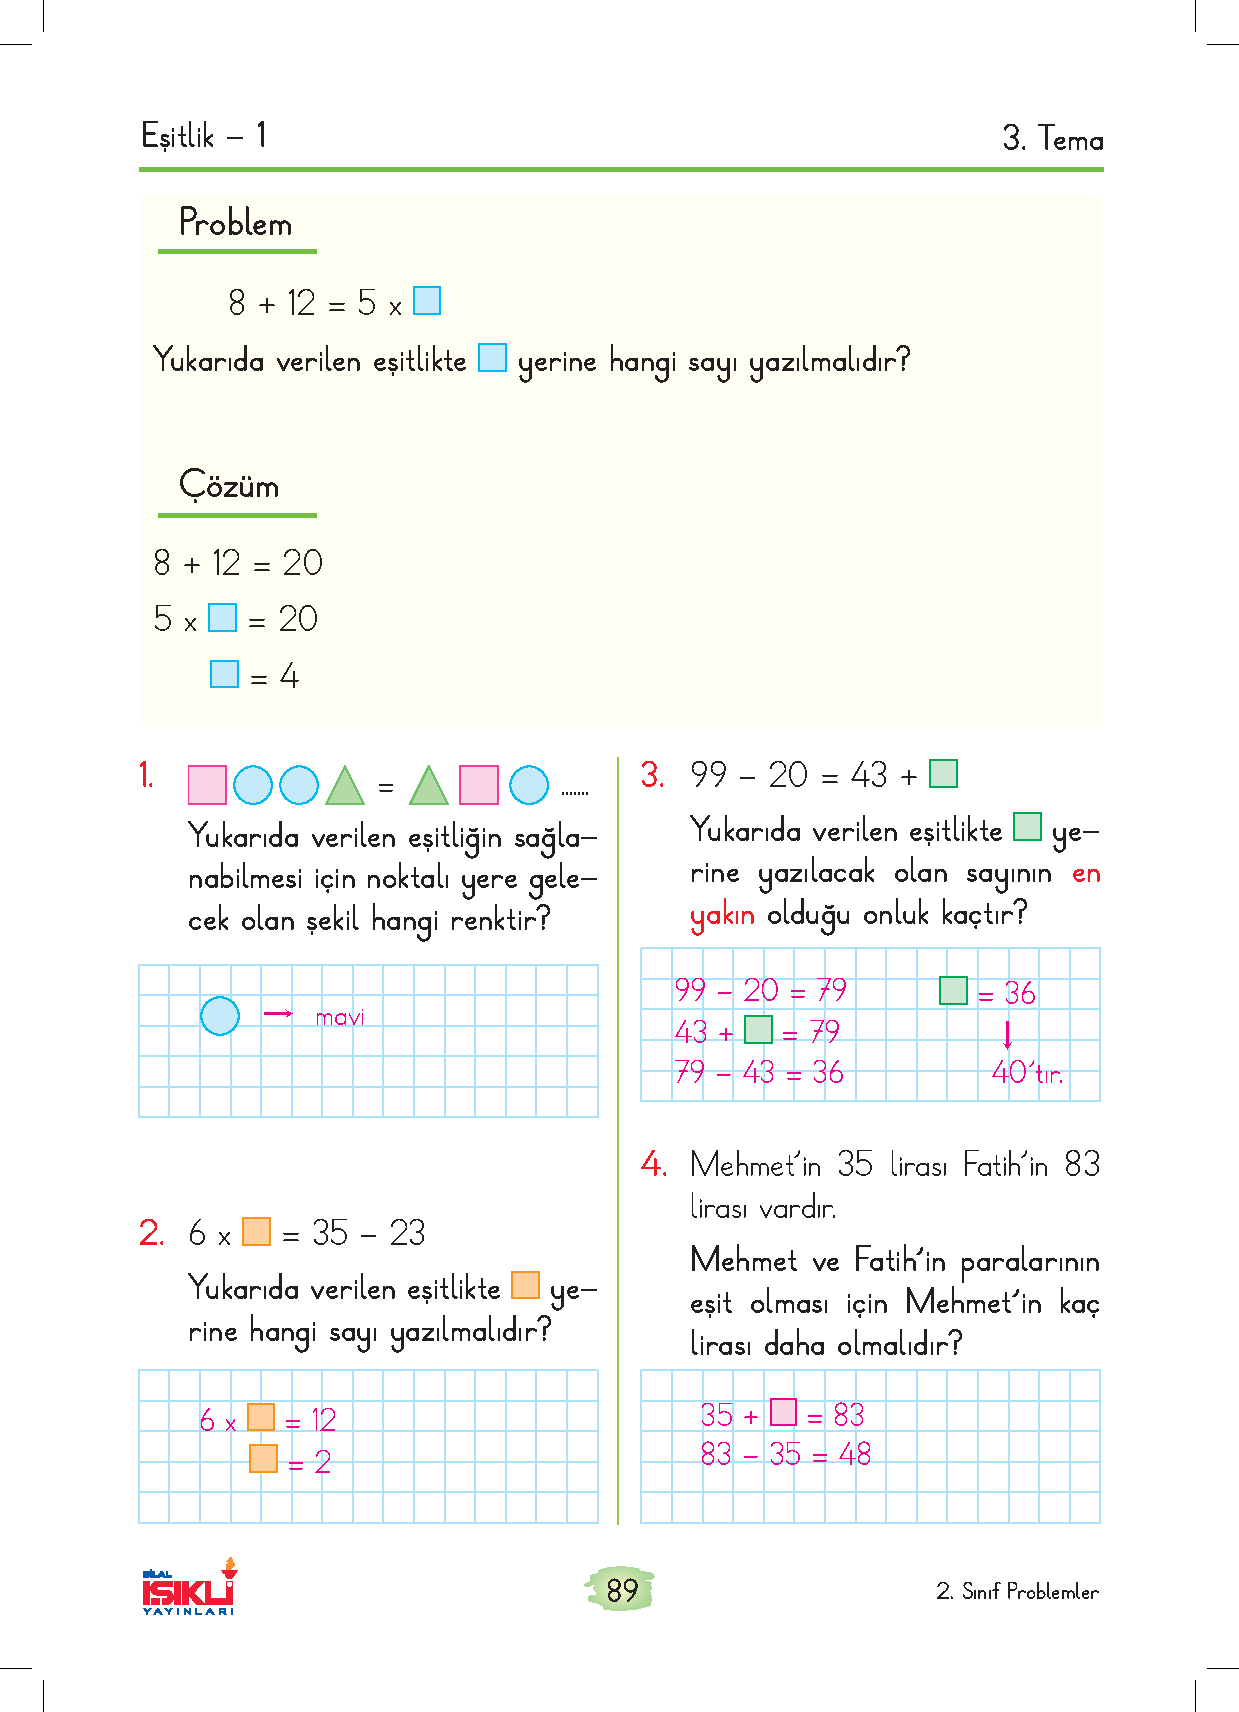 Eşitlik – 1
3. Tema
Problem
8 + 12 = 5 x
Yukarıda verilen eşitlikte yerine hangi sayı yazılmalıdır?
Çözüm
8 + 12 = 20
5 x = 20
= 4
1. = .......
Yukarıda verilen eşitliğin sağla-
nabilmesi için noktalı yere gele-
cek olan şekil hangi renktir?
→ mavi
2. 6 x = 35 – 23
Yukarıda verilen eşitlikte ye-
rine hangi sayı yazılmalıdır?
6 x = 12
= 2
3. 99 – 20 = 43 +
Yukarıda verilen eşitlikte ye-
rine yazılacak olan sayının en
yakın olduğu onluk kaçtır?
99 – 20 = 79 = 36
43 + = 79 ↓
79 – 43 = 36 40'tır.
4. Mehmet'in 35 lirası Fatih'in 83
lirası vardır.
Mehmet ve Fatih'in paralarının
eşit olması için Mehmet'in kaç
lirası daha olmalıdır?
35 + = 83
83 – 35 = 48
BİLAL
IŞIKLI
YAYINLARI
89
2. Sınıf Problemler